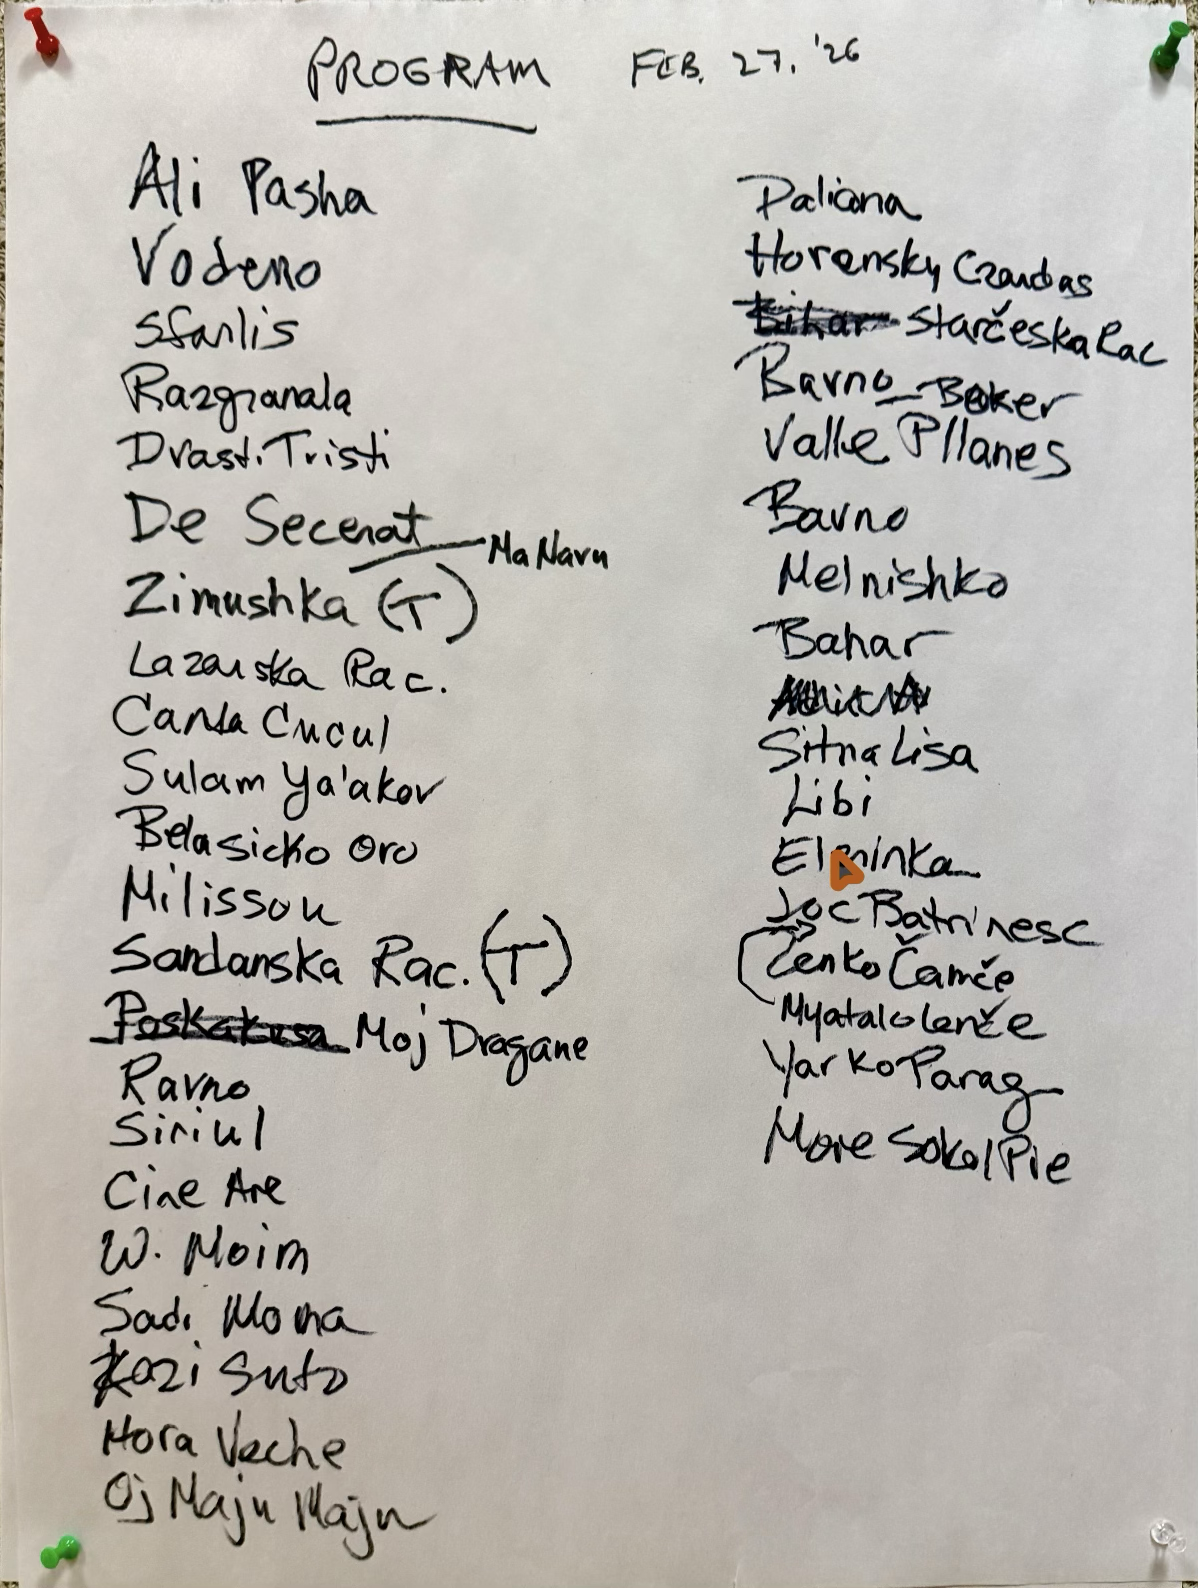 PROGRAM FEB. 27. '26
Ali Pasha
Vodeno
Sfarlis
Razgranala
Drast. Tristi
De Secerat
Ma Navu
Zimushka (T)
Lazarska Rac.
Canta Cucul
Sulam Ya'akov
Belasicko Oro
Milissou
Sandanska Rac. (T)
Poskakusa Moj Dragane
Ravno
Siriul
Cine Are
W. Moim
Sadi Moma
Kozi Suto
Hora Veche
Oj Maju Maju
Daliana
Horansky Czardas
Bihar Starčeska Rac
Bavno Boker
Valle Pllanes
Bavno
Melnishko
Bahar
Sitna Lisa
Libi
Elminka
Joc Batrinesc
Zenko Čamče
Myatalo Lenče
Yarko Parag
More Sokol Pie